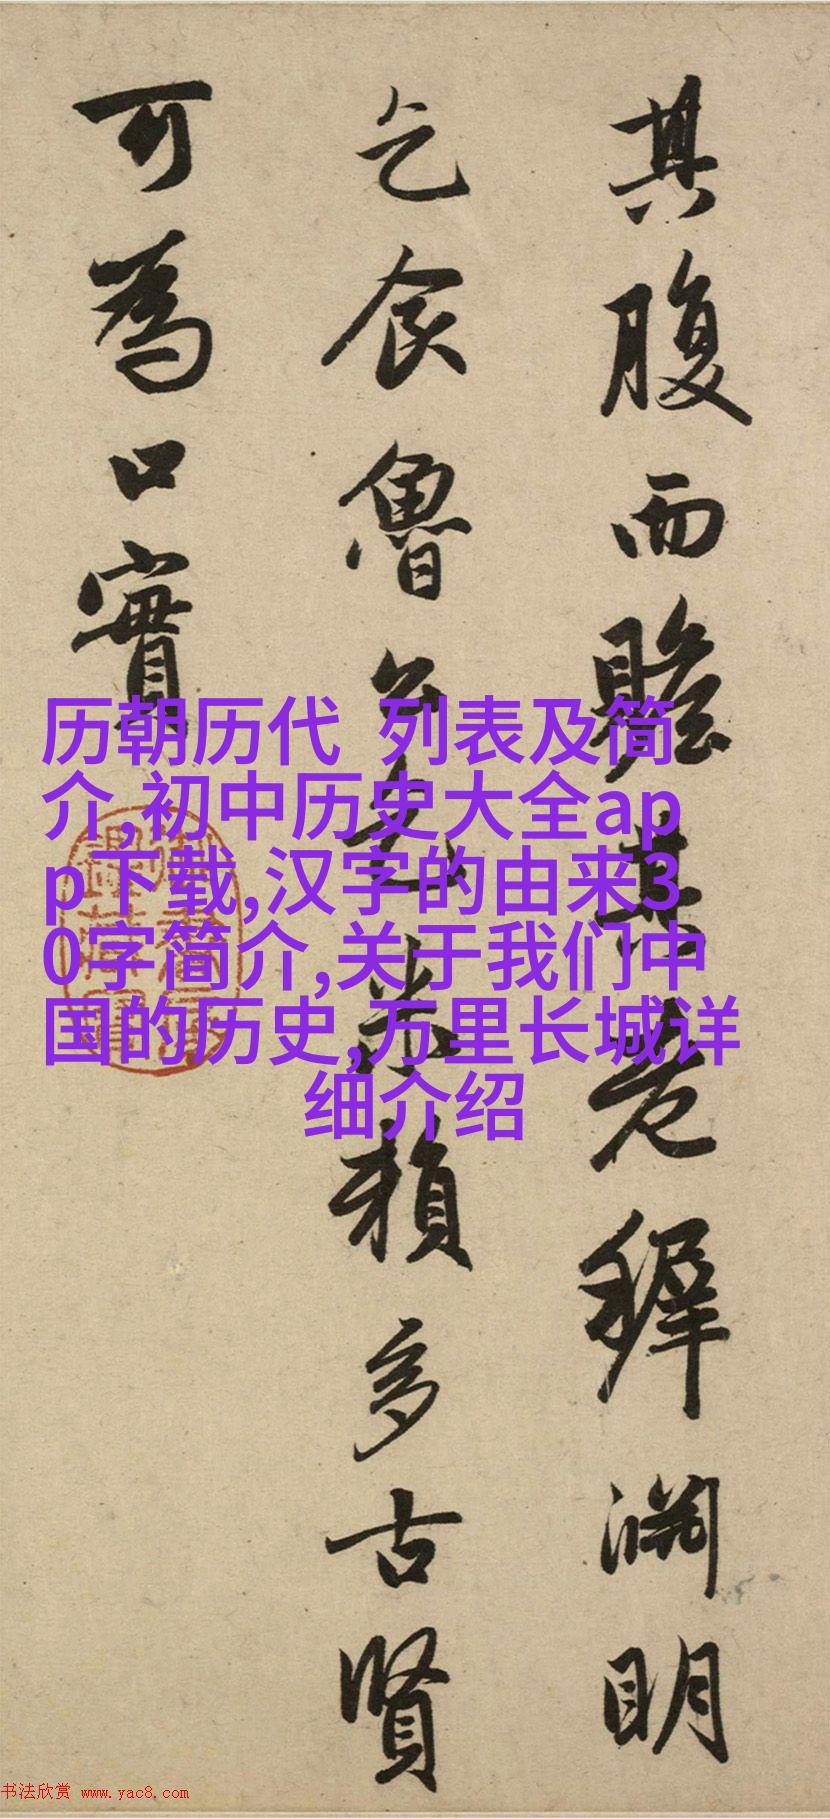 其腹而贍其老穉淵明
乞食魯公乞米賴多古賢
可為口實
历朝历代 列表及简
介,初中历史大全ap
p下载,汉字的由来3
0字简介,关于我们中
国的历史,万里长城详
细介绍
书法欣赏 www.yac8.com